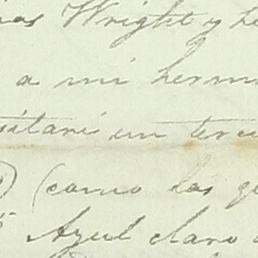 Wright y he
a mi herm
sitaré un terce
(como las q
Azul claro